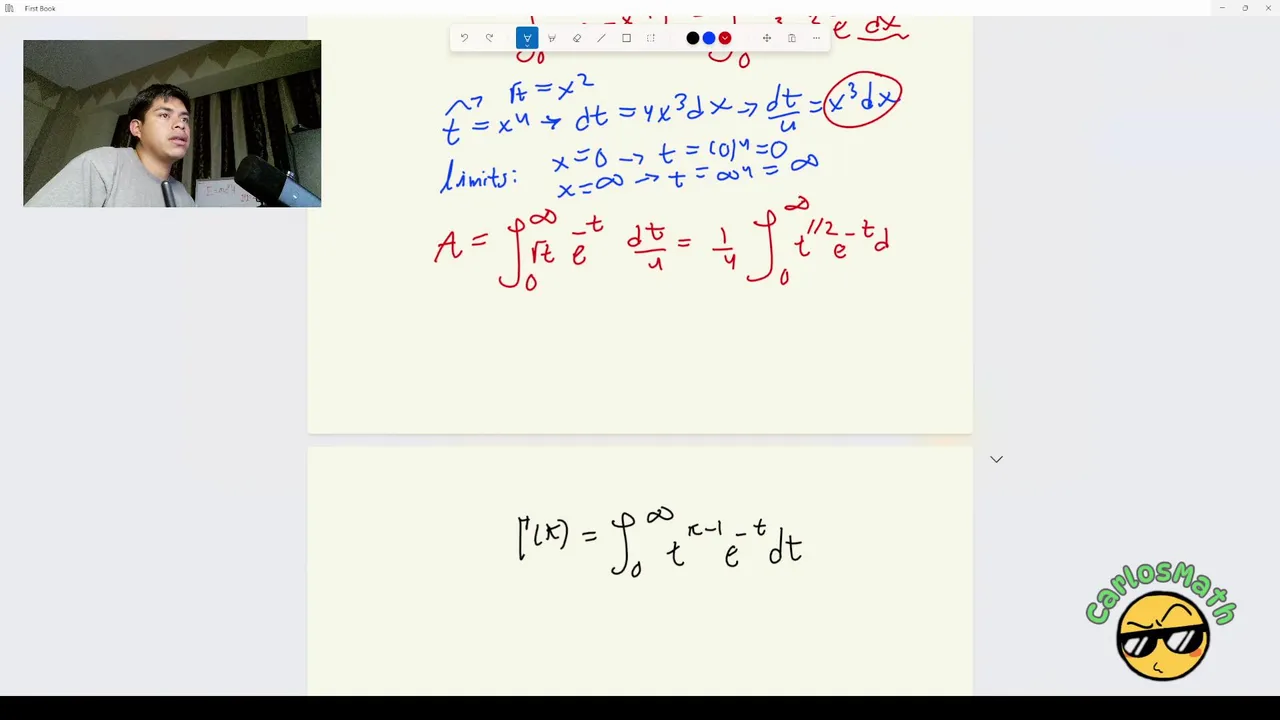 First Book
e dx
√t = x²
t = x⁴ → dt = 4x³dx → dt/4 = x³dx
limits: x=0 → t = (0)⁴ = 0
x=∞ → t = ∞⁴ = ∞
A = ∫₀^∞ √t e^-t dt/4 = 1/4 ∫₀^∞ t^1/2 e^-t d
Γ(x) = ∫₀^∞ t^x-1 e^-t dt
CarlosMath